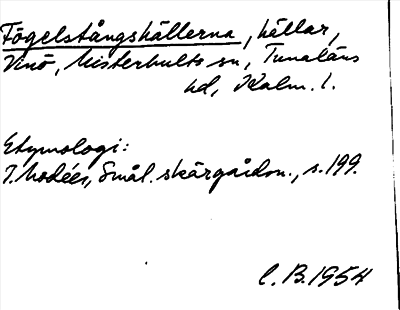 Fögelstångshällerna, hällar,
Vinö, Misterhults sn, Tunaläns
hd, Kalm. l.
Etymologi:
I. Modéer, Smål. skärgårdsn., s. 199.
C. B. 1954